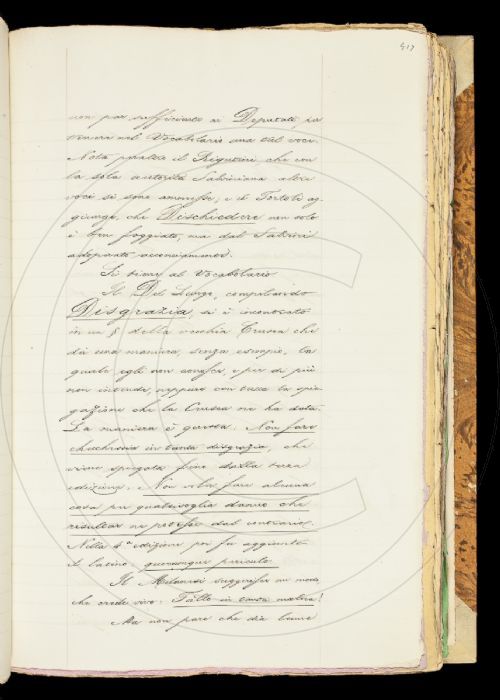 417
non par sufficiente ai Deputati, per
tenere nel Vocabolario una tal voce.
Nota peraltro il Rigutini che con
la sola autorità Salviniana altre
voci si sono ammesse, e il Tortoli ag-
giunge, che Dischiedere non solo
è ben foggiato, ma dal Salvini
adoperato acconciamente.
Si tiene al Vocabolario
Il Del Lungo, compilando
Disgrazia, si è incontrato
in un § della vecchia Crusca che
dà una maniera, senza esempio, la
quale egli non conosce, e per di più
non intende, neppure con tutta la spie-
gazione che la Crusca ne ha data.
La maniera è questa. Non fare
in tanta disgrazia, che
viene spiegata fino dalla terza
edizione. Non voler fare alcuna
cosa per qualsivoglia danno che
risultar ne potesse dal contrario.
Nella 4ª edizione poi fu aggiunto
il latino: quocunque periculo.
Il Milanesi suggerisce un modo
che crede vivo: Fallo in tanta malora!
Ma non pare che dia lume